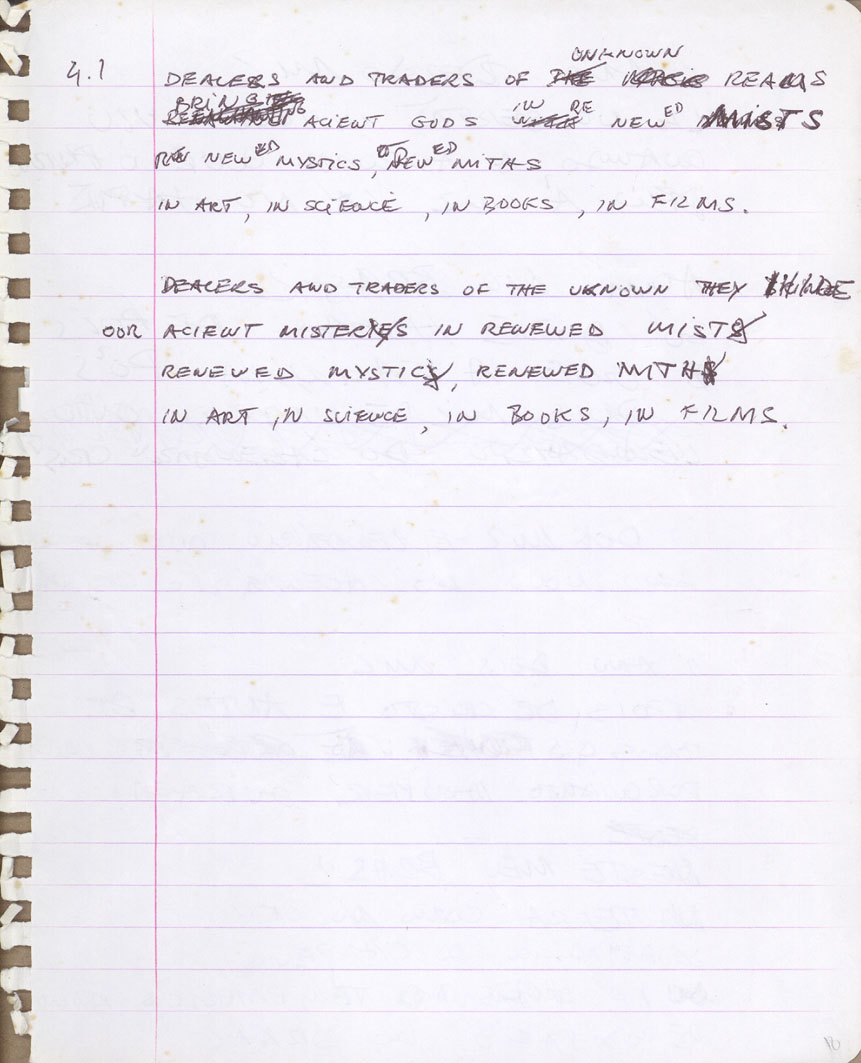 4.1 DEALERS AND TRADERS OF UNKNOWN REALMS
BRING ACIENT GODS IN RENEWED MISTS
RENEWED MYSTICS, RENEWED MITHS
IN ART, IN SCIENCE, IN BOOKS, IN FILMS.
DEALERS AND TRADERS OF THE UKNOWN THEY
OUR ACIENT MISTERIES IN RENEWED MISTS
RENEWED MYSTICS, RENEWED MITHS
IN ART, IN SCIENCE, IN BOOKS, IN FILMS.